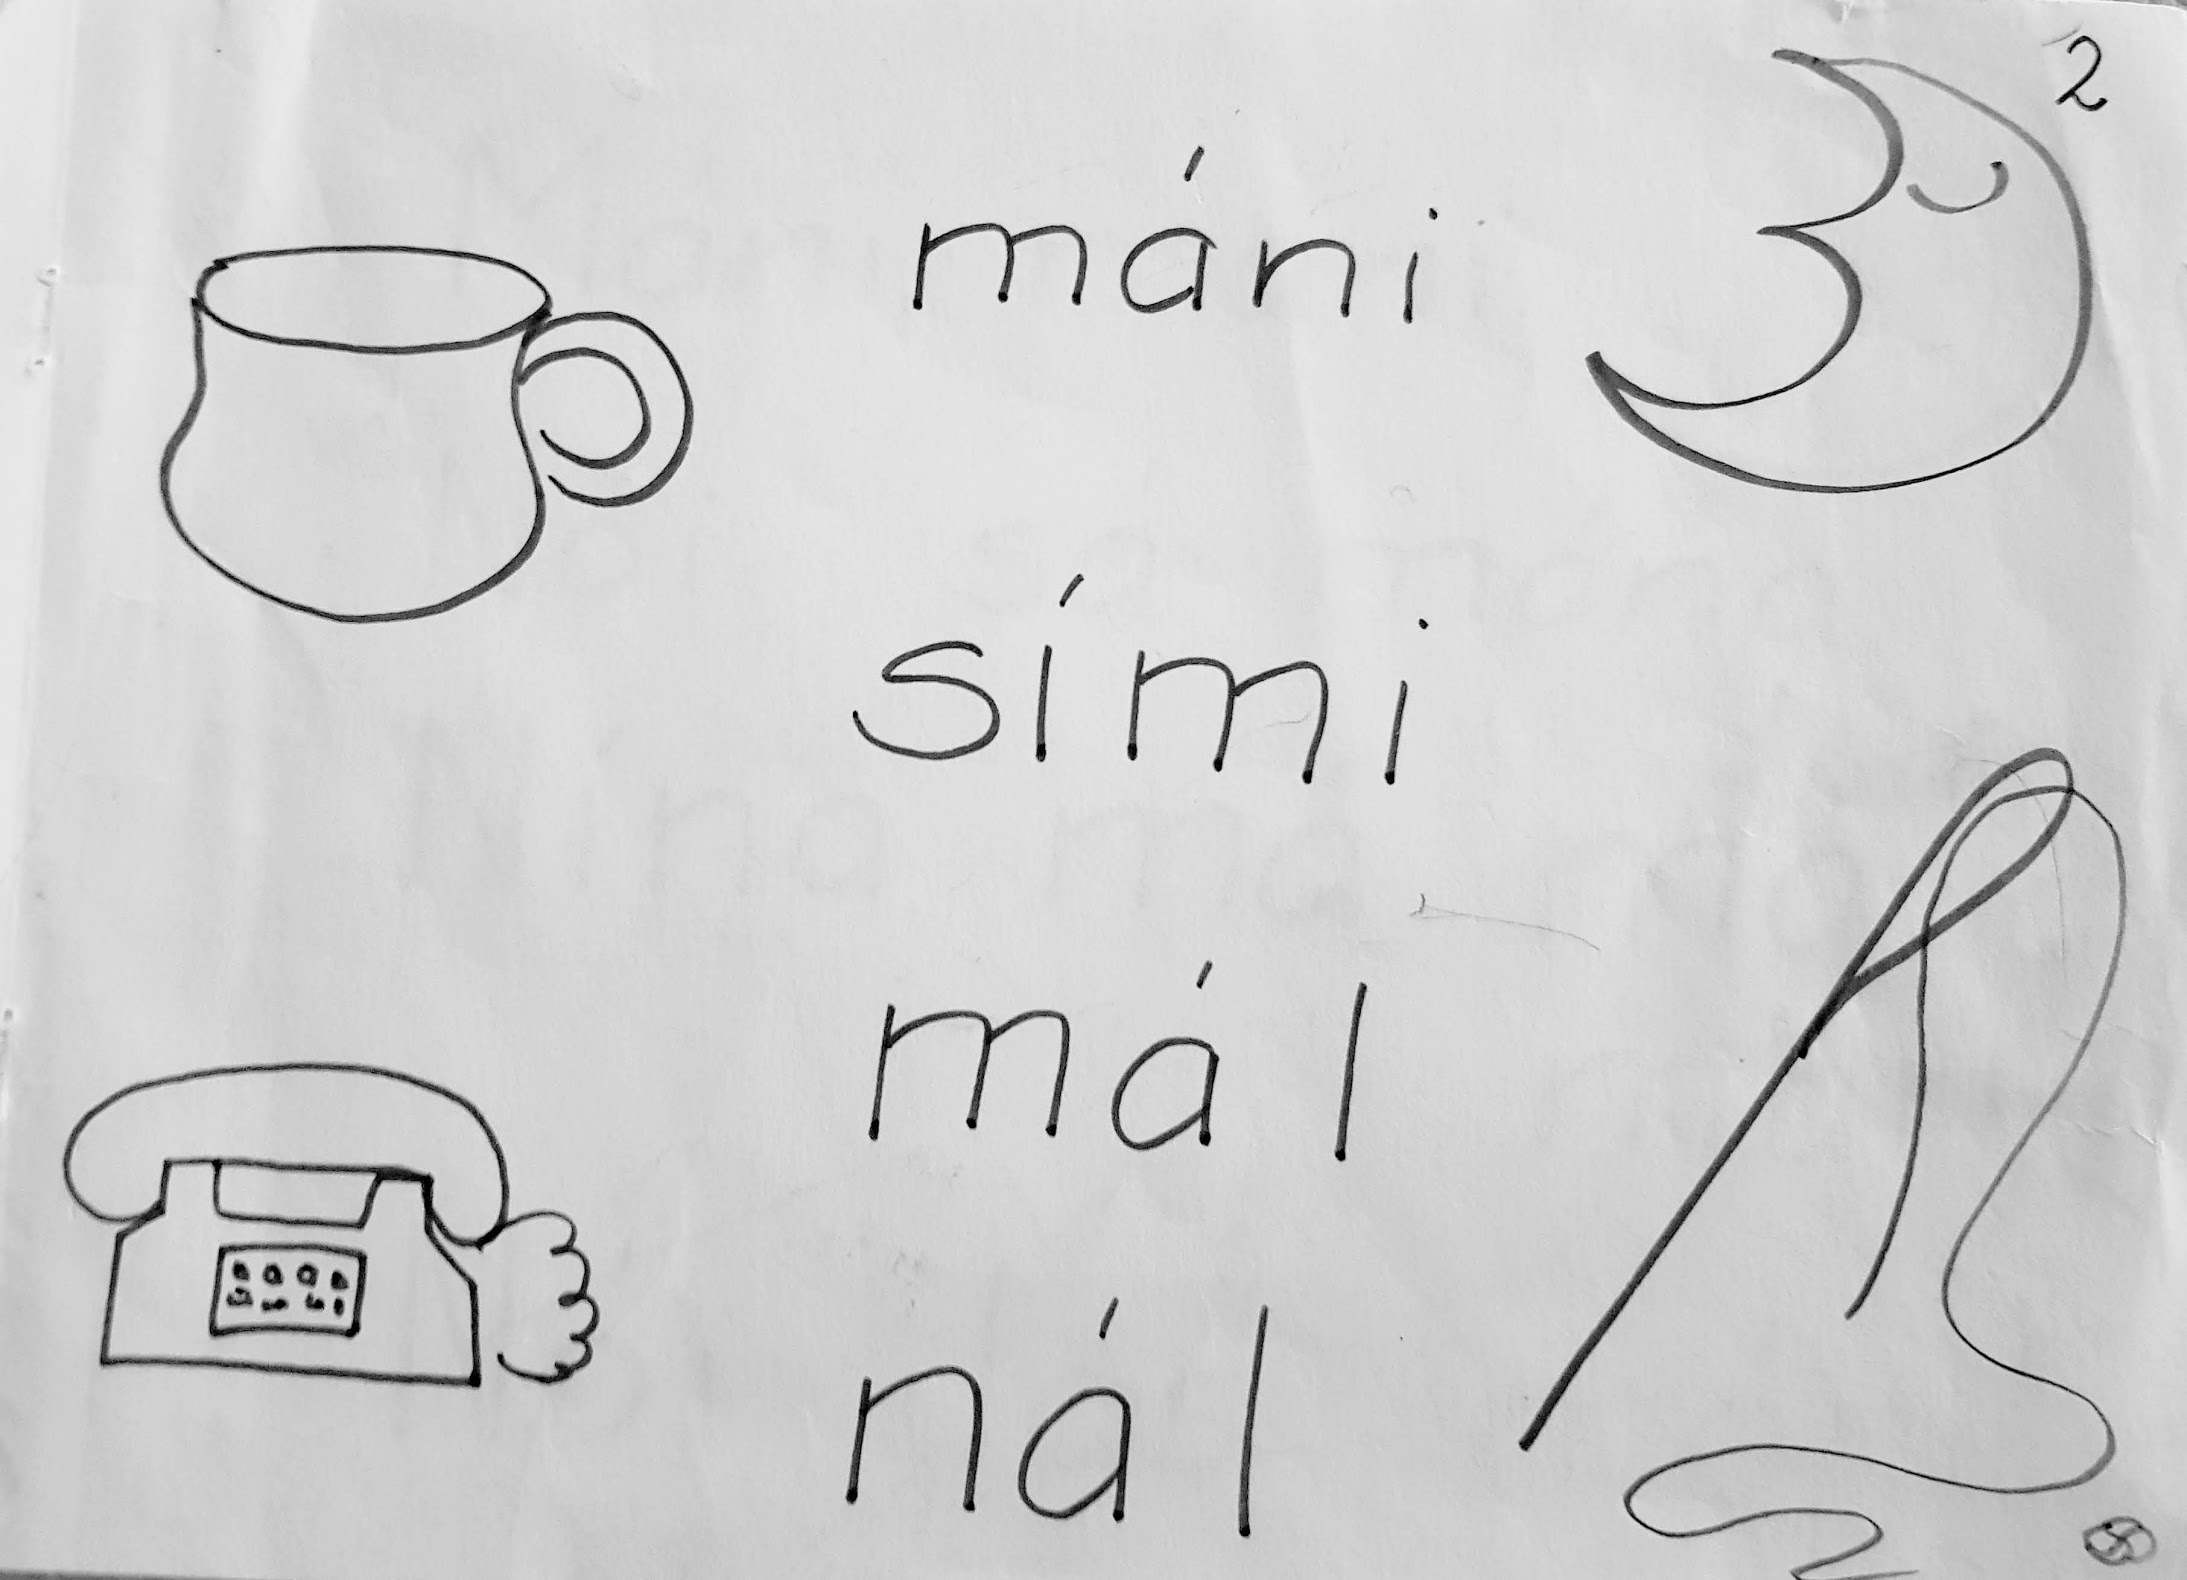 2
máni
sími
mál
nál